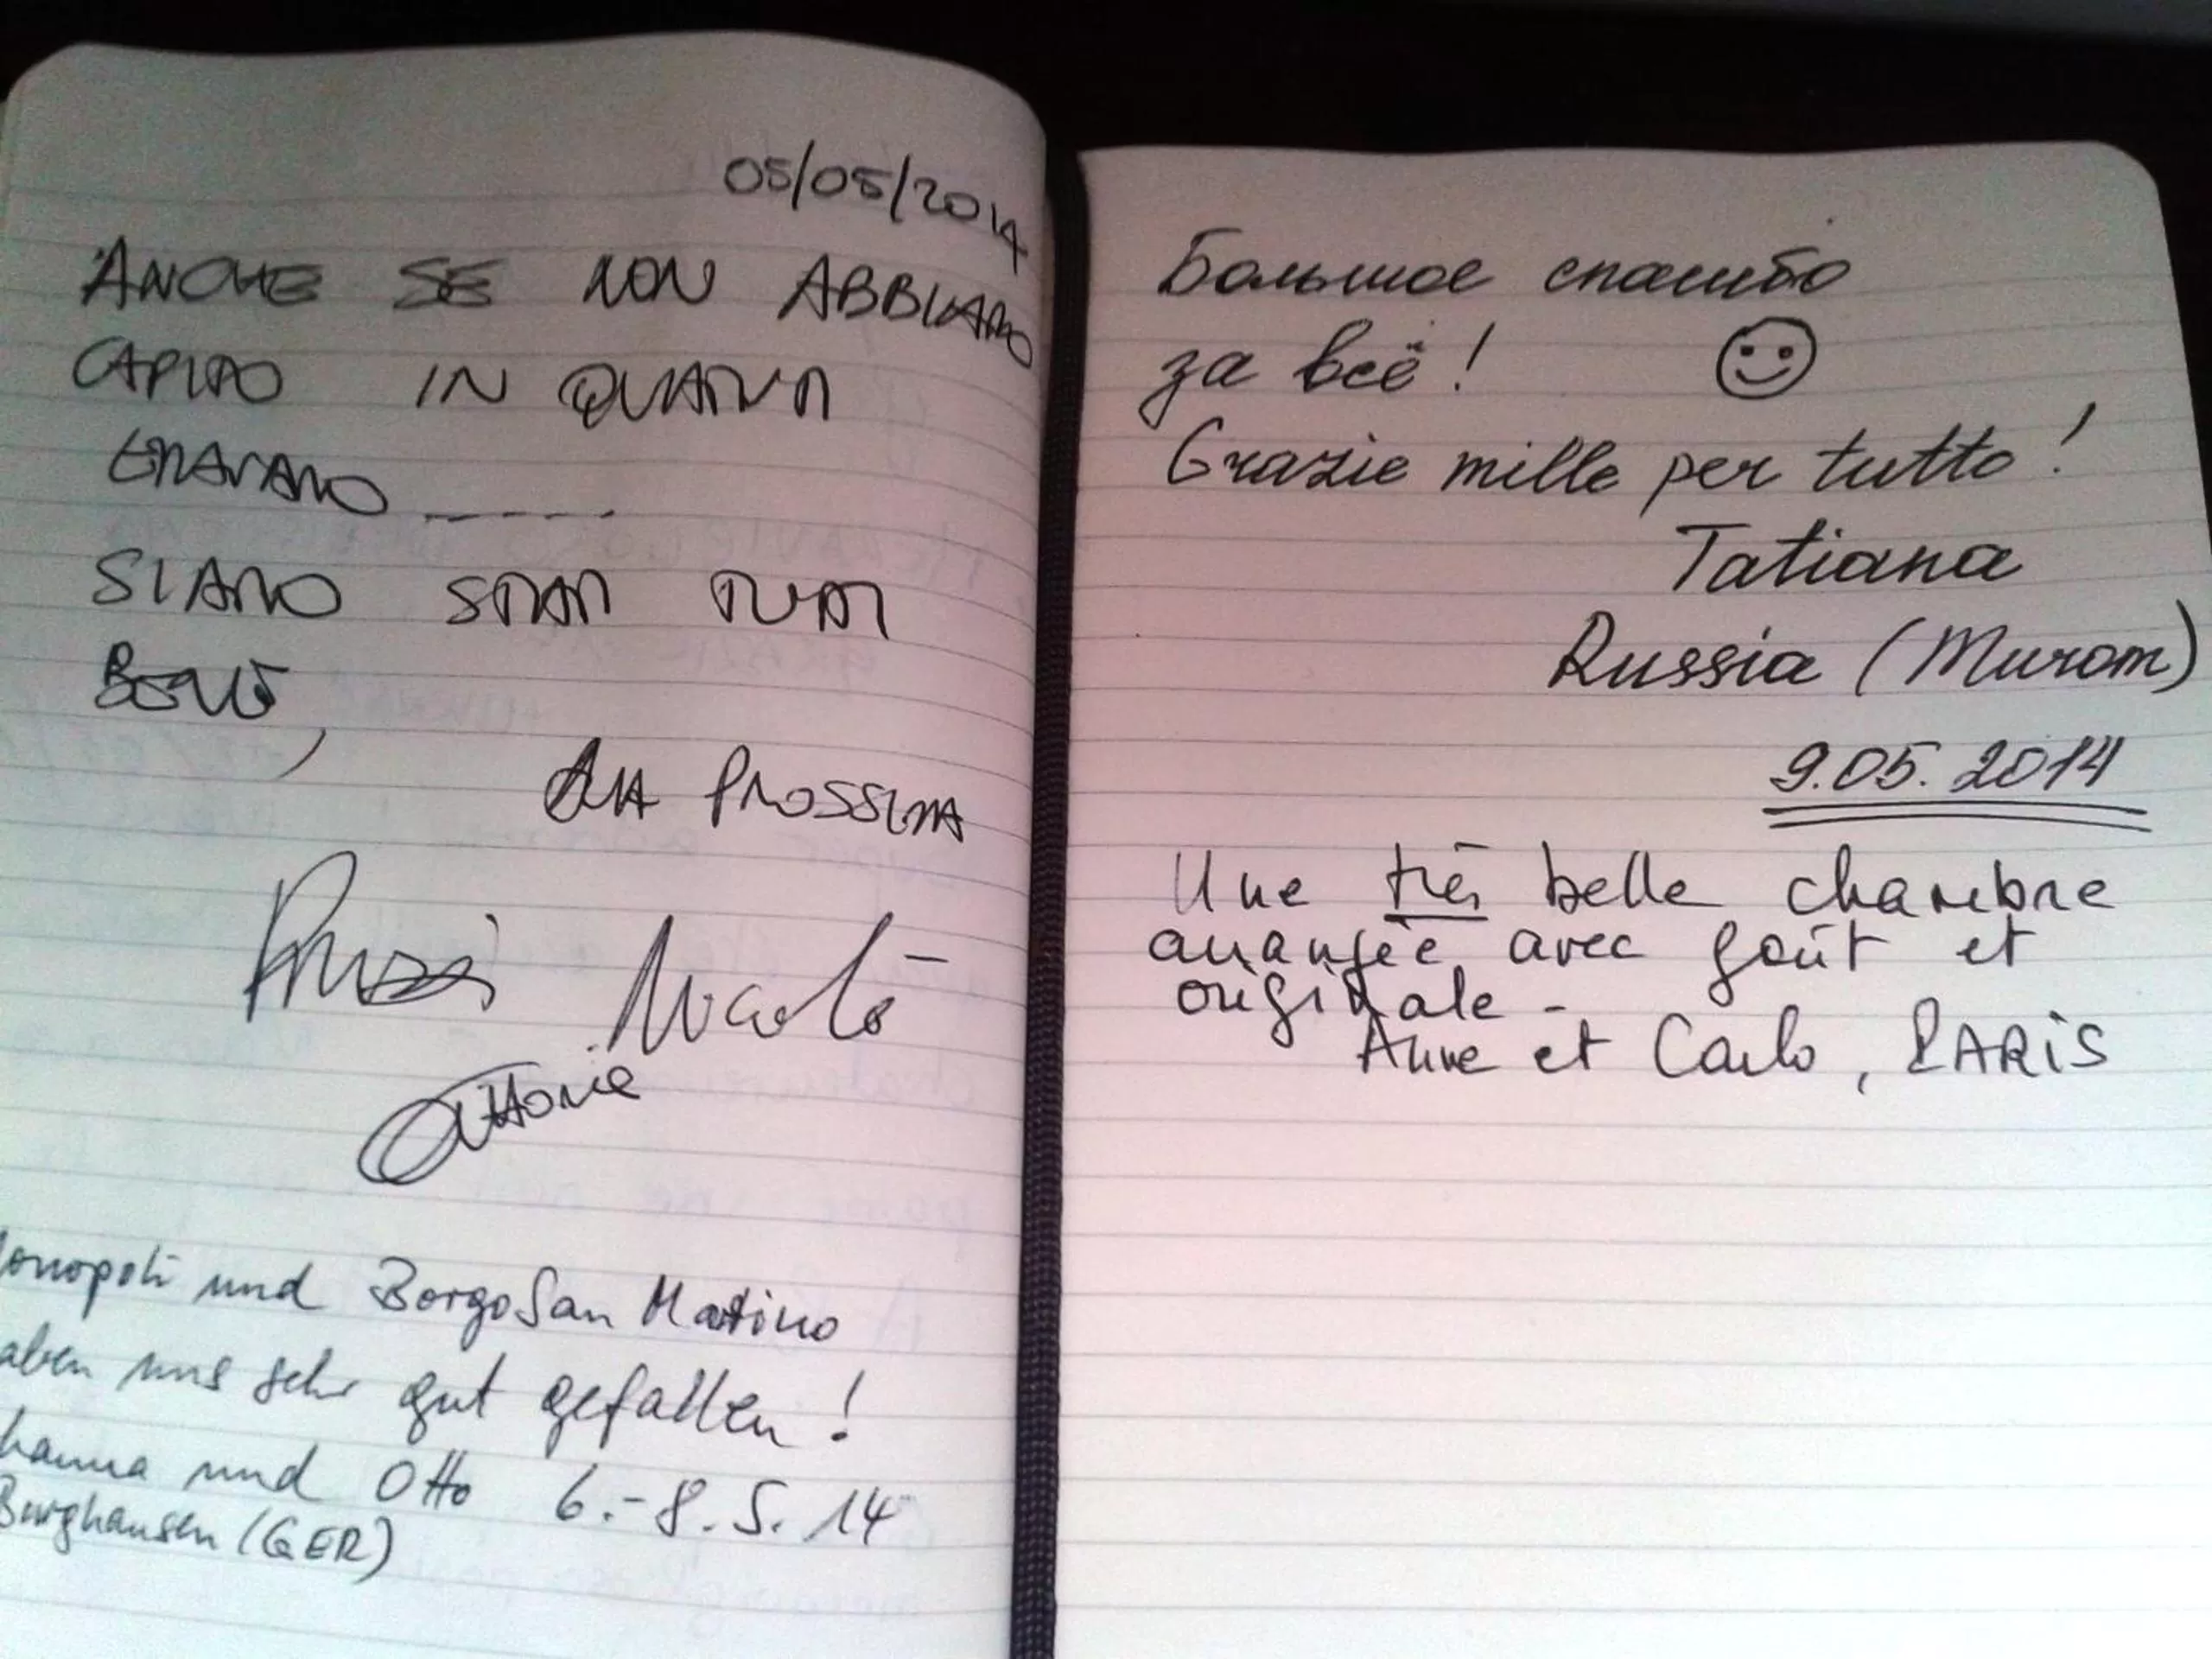 05/05/2014
ANCHE SE NON ABBIAMO
CAPITO IN QUANTI
ERAVAMO _ _ _ _ _
SIAMO STATI TUTTI
BENE,
ALLA PROSSIMA
Nicolò
Monopoli und Borgo San Martino
haben uns sehr gut gefallen!
hanna und Otto 6.-8.5.14
Burghausen (GER)
Большое спасибо
за всё!
Grazie mille per tutto!
Tatiana
Russia (Murom)
9.05.2014
Une très belle chambre
arrangée avec goût et
originale -
Anne et Carlo, PARIS